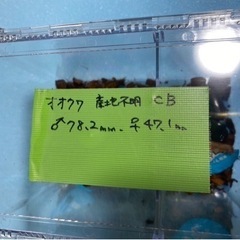 オオクワ 産地不明 CB
♂78.2mm. ♀47.1mm